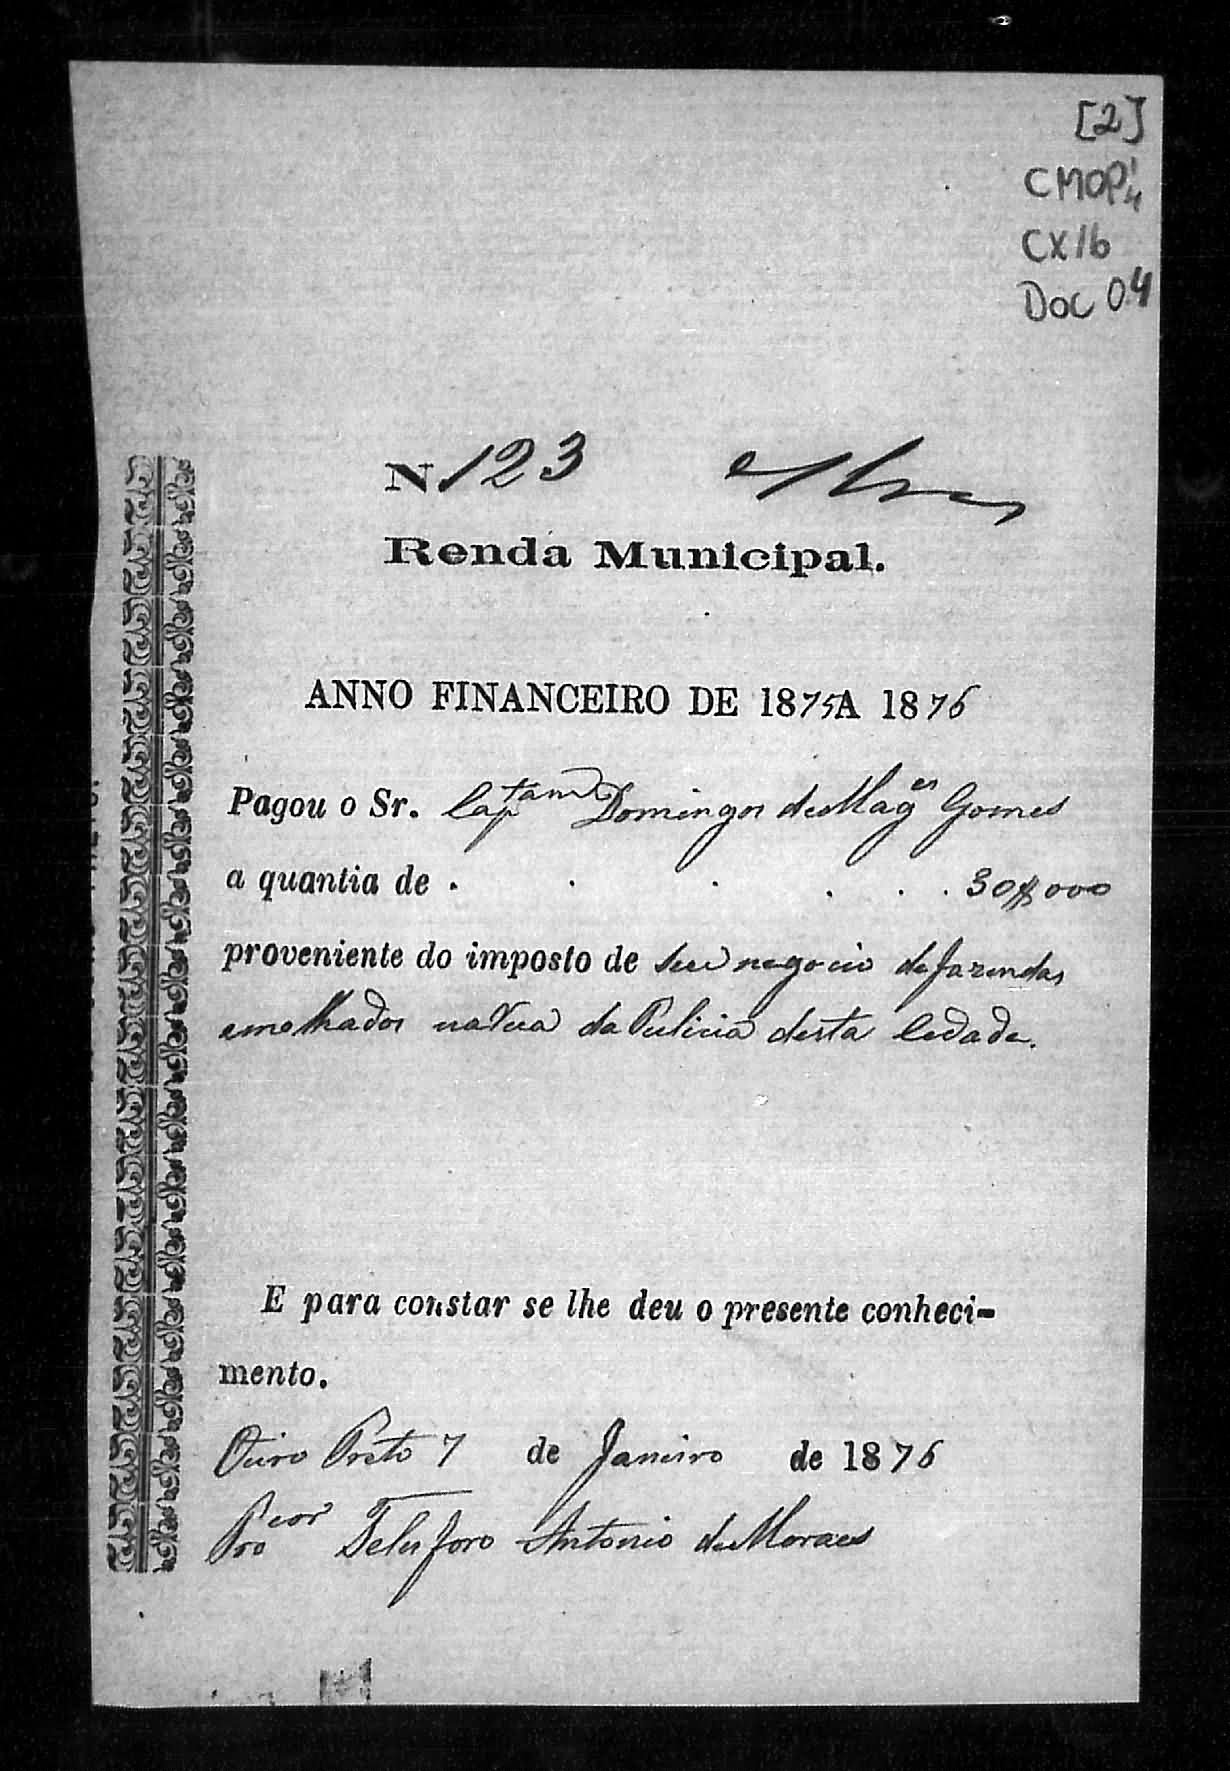 [2]
CMOP
CX 16
Doc 04
N. 123
Renda Municipal.
ANNO FINANCEIRO DE 1875 A 1876
Pagou o Sr. Captam Domingos de Mages Gomes
a quantia de . . . . . . 30$000
proveniente do imposto de seu negocio de fazendas
e molhados na Rua da Pulicia desta Cedade.
E para constar se lhe deu o presente conheci-
mento.
Ouro Preto 7 de Janeiro de 1876
Procor Telesforo Antonio de Moraes